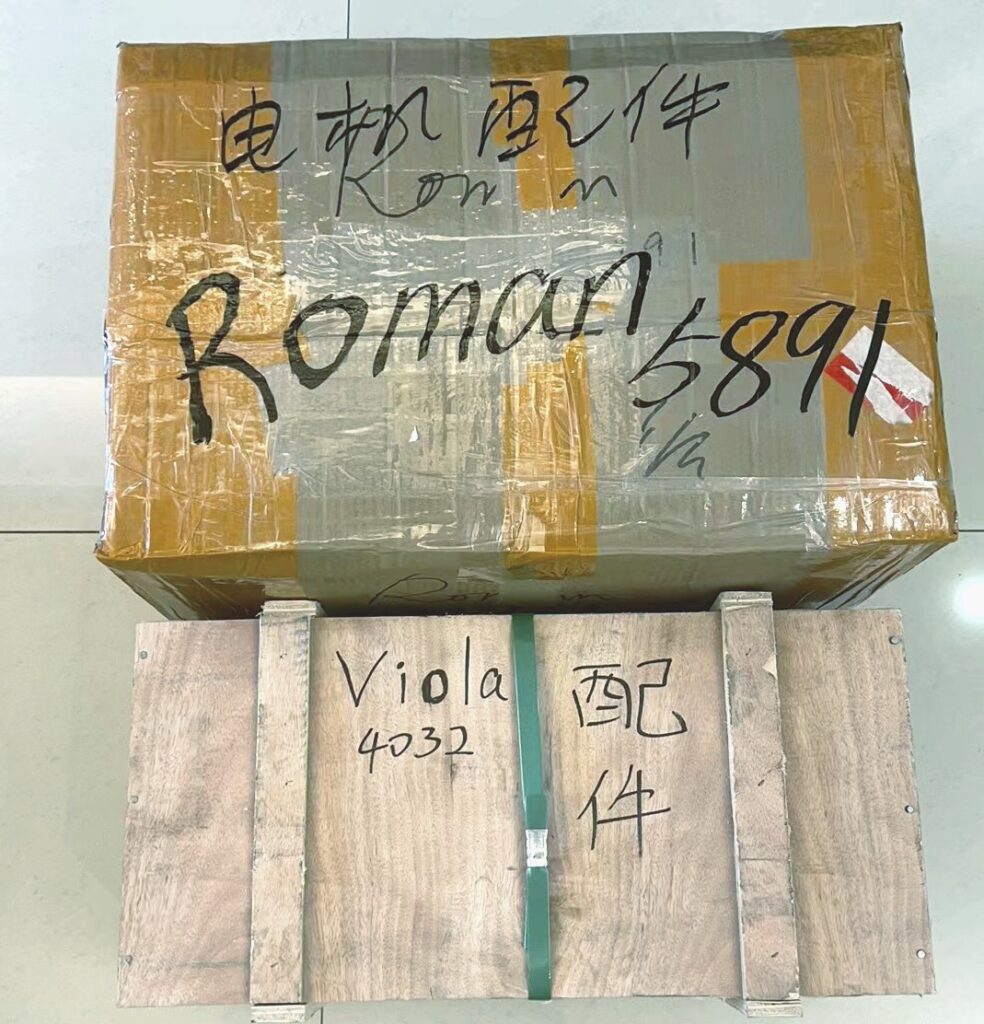 电机配件
Roman
91
Roman 5891
Viola 配
4032
件